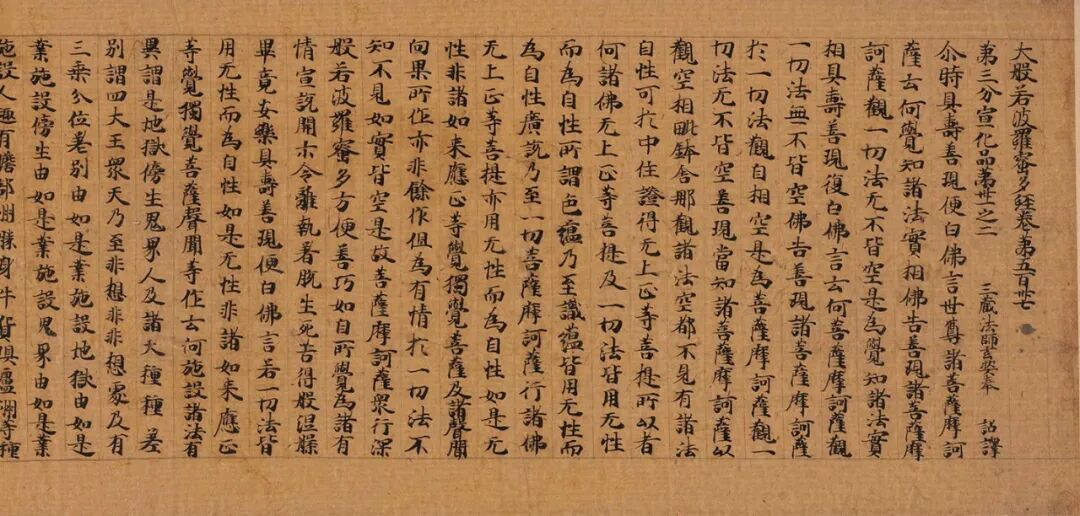 大般若波羅蜜多經卷苐五百卅七
苐三分宣化品苐卅一之二 三藏法師玄奘奉 詔譯
尒時具壽善現便白佛言世尊諸菩薩摩訶
薩云何覺知諸法實相佛告善現諸菩薩摩
訶薩觀一切法无不皆空是為覺知諸法實
相具壽善現復白佛言云何菩薩摩訶薩觀
一切法無不皆空佛告善現諸菩薩摩訶薩
於一切法觀自相空是為菩薩摩訶薩觀一
切法无不皆空善現當知諸菩薩摩訶薩以
觀空相毗鉢舍那觀諸法空都不見有諸法
自性可於中住證得无上正等菩提所以者
何諸佛无上正等菩提及一切法皆用无性
而為自性所謂色蘊乃至識蘊皆用无性而
為自性廣說乃至一切菩薩摩訶薩行諸佛
无上正等菩提亦用无性而為自性如是无
性非諸如来應正等覺獨覺菩薩及諸聲聞
向果所作亦非餘作但為有情於一切法不
知不見如實皆空是故菩薩摩訶薩衆行深
般若波羅蜜多方便善巧如自所覺為諸有
情宣說開示令離執著脫生死苦得般涅槃
畢竟安樂具壽善現便白佛言若一切法皆
用无性而為自性如是无性非諸如来應正
等覺獨覺菩薩聲聞等作云何施設諸法有
異謂是地獄傍生鬼界人及諸天種種差
別謂四大王衆天乃至非想非非想處及有
三乘分位差別由如是業施設地獄由如是
業施設傍生由如是業施設鬼界由如是業
施設人趣有贍部州勝身牛貨俱盧洲等種